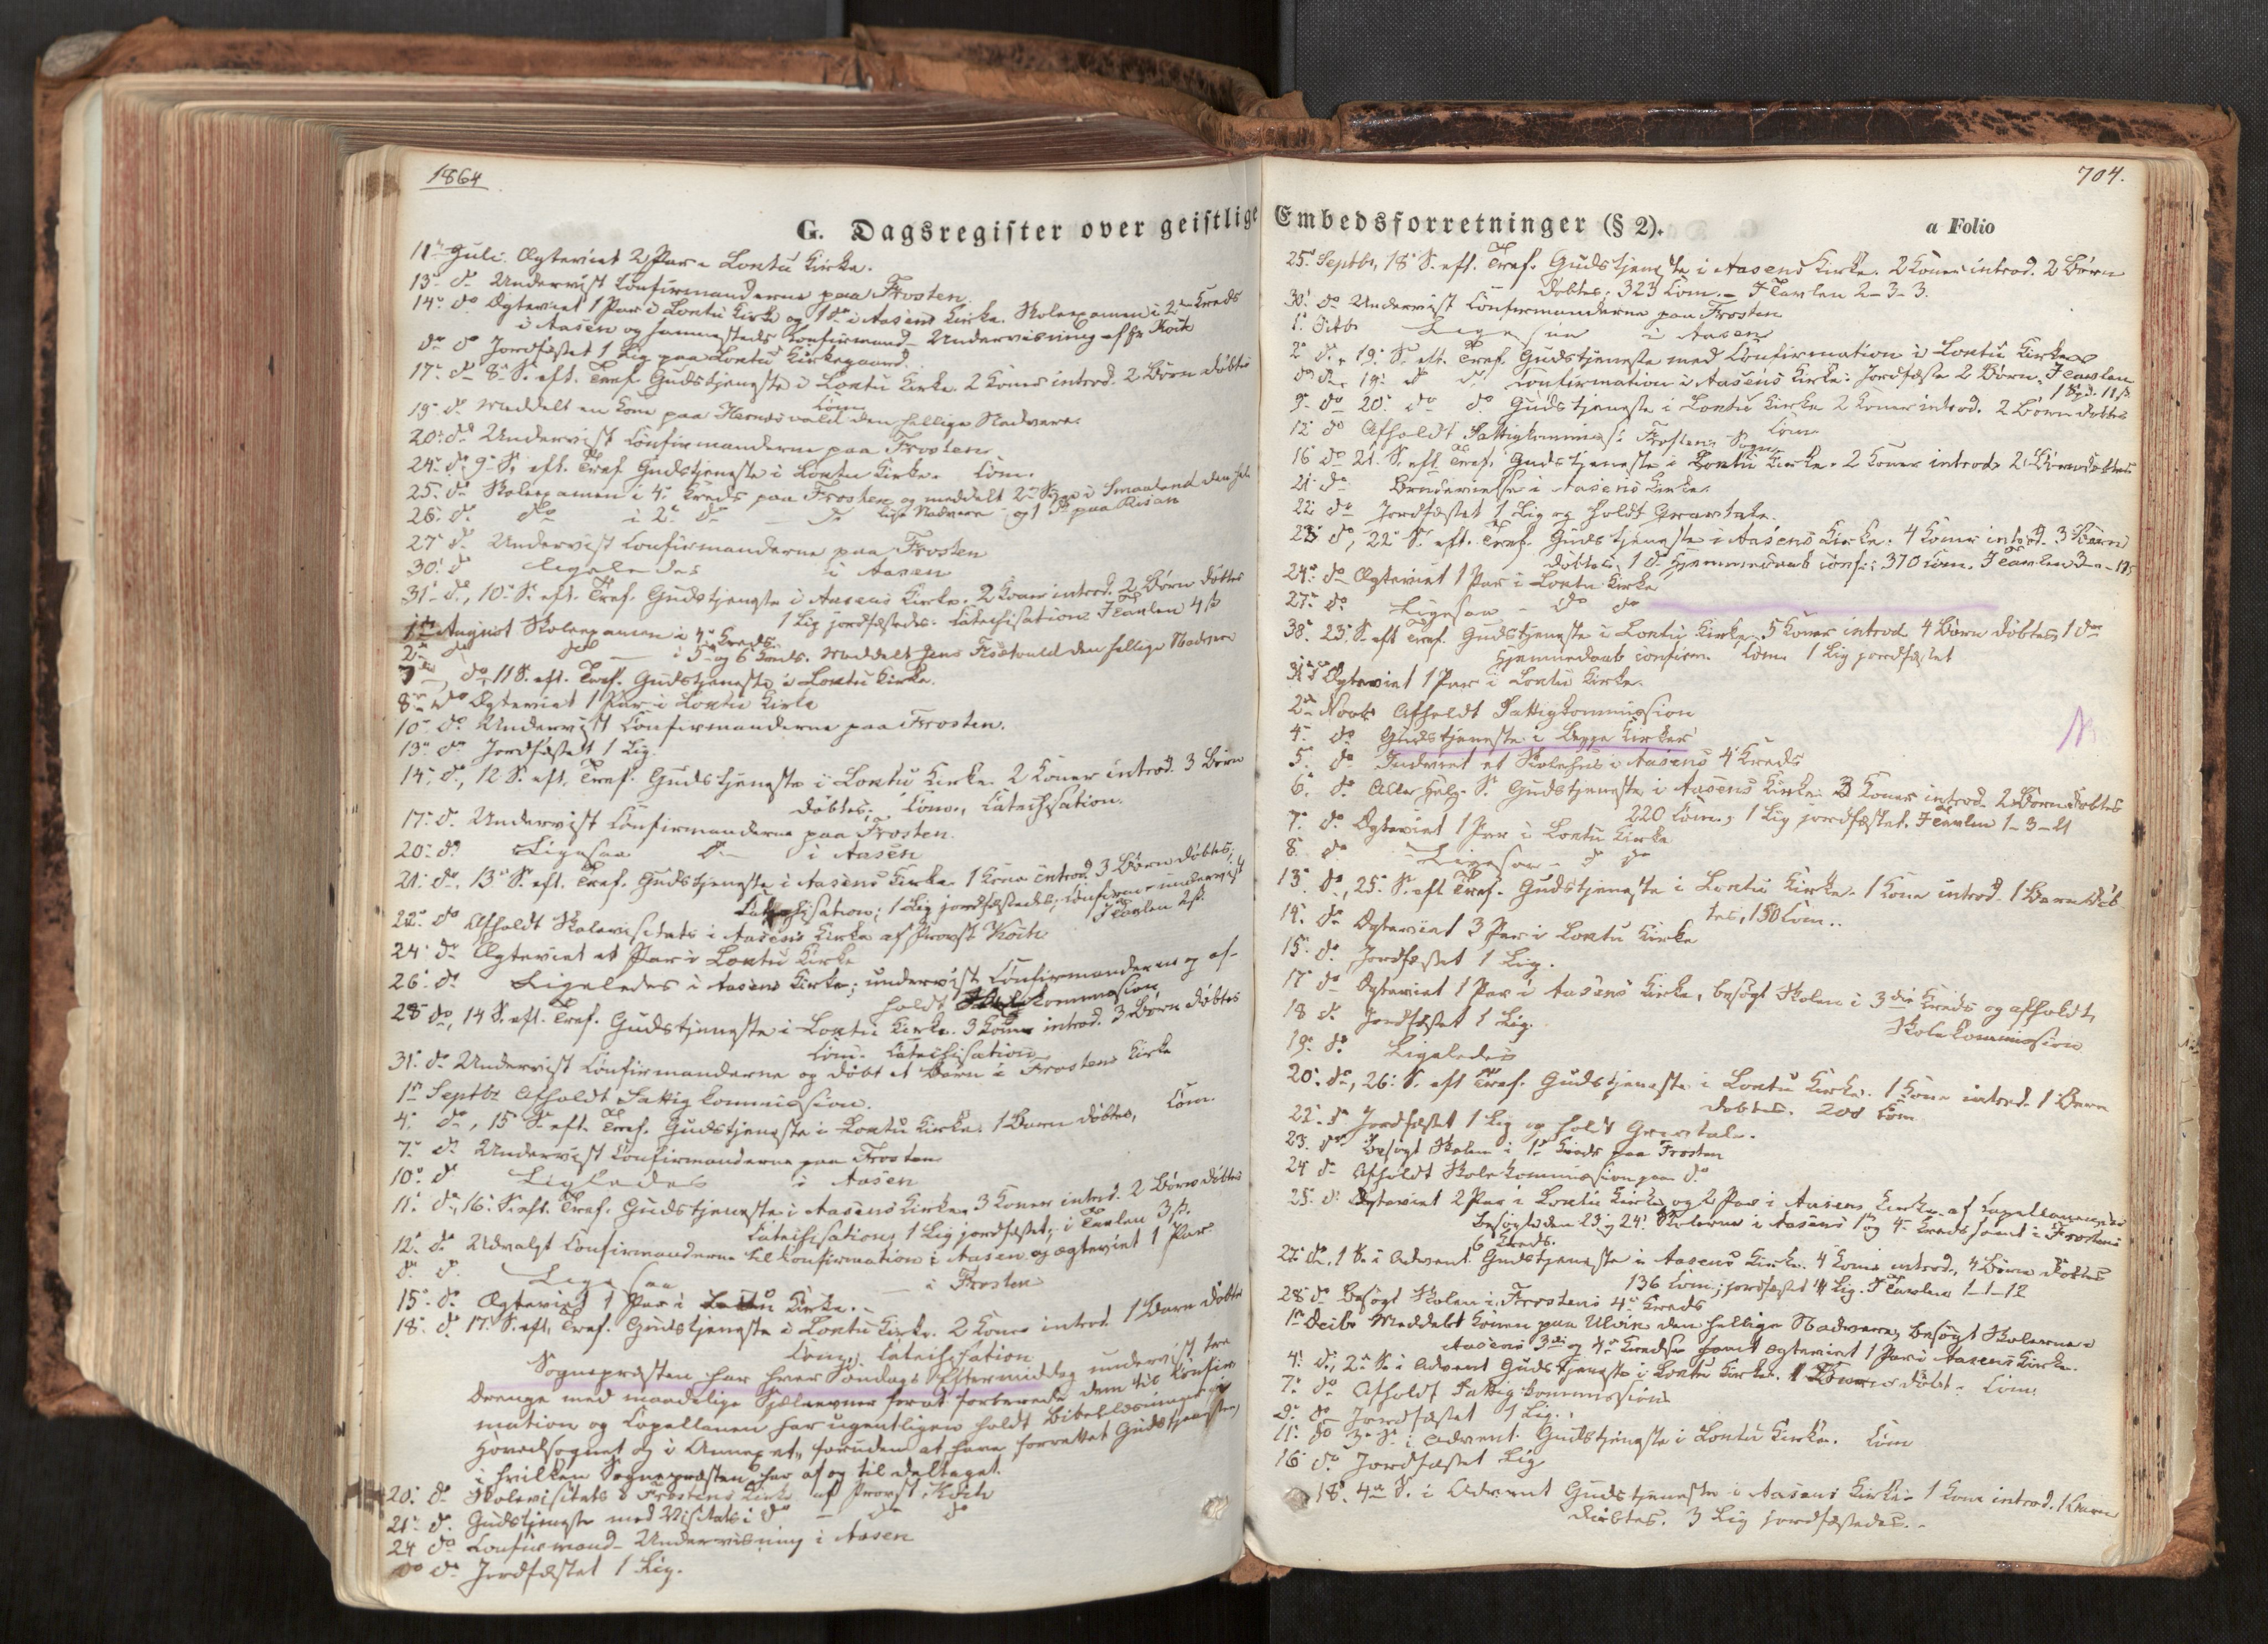 1864
G. Dagsregister over geistlige
11te Juli. Ægteviet 2 Par i Loxtu Kirke.
13de do Undervist Confirmanderne paa Frosten
14de do Ægteviet 1 Par i Loxtu Kirke og 1 do i Aasens Kirke. Skoleexamen i 2den Kreds
i Aasen og sammesteds Confirmand-Undervisning af Hr Koch
do do Jordfæstet 1 Lig paa Loxtu Kirkegaard.
17de do 8de S. eft. Tref. Gudstjeneste i Loxtu Kirke. 2 Koner introd. 2 Børn døbtes
Com.
19de do Meddelt en Kone paa den hellige Nadvere
20de do Undervist Confirmanderne paa Frosten
24de do 9de S. eft. Tref. Gudstjeneste i Loxtu Kirke. Com.
25de do Skoleexamen i 4de Kreds paa Frosten og meddelt 2de Syge i Smaaland den hel-
26de do do i 2den do do lige Nadvere og 1 do paa
27de do Undervist Confirmanderne paa Frosten
30de do ligeledes i Aasen
31te do, 10de S. eft. Tref. Gudstjeneste i Aasens Kirke. 2 Koner introd. 2 Børn døbtes
1 Lig jordfæstedes. Catechisation. I Tavlen 4 s
1ste August Skoleexamen i 4de Kreds.
2den do do i 5te og 6 Kreds. Meddelt Jens den hellige Nadvere
7de do, 11 S. eft. Tref. Gudstjeneste i Loxtu Kirke.
8de do Ægteviet 1 Par i Loxtu Kirke
10de do Undervist Confirmanderne paa Frosten.
13de do Jordfæstet 1 Lig.
14de do, 12 S. eft. Tref. Gudstjeneste i Loxtu Kirke. 2 Koner introd. 3 Børn
døbtes. Com., Catechisation.
17de do Undervist Confirmanderne paa Frosten.
20de do Ligesaa do i Aasen
21de do, 13de S. eft. Tref. Gudstjeneste i Aasens Kirke 1 Kone introd. 3 Børn døbtes;
Catechisation; 1 Lig jordfæstedes; Confirm. undervist
I Tavlen 2 s.
22de do Afholdt Skolevisitats i Aasens Kirke af Provst Koch
24de do Ægteviet et Par i Loxtu Kirke
26de do Ligeledes i Aasens Kirke; undervist Confirmanderne og af-
holdt Kommission
28de do, 14 S. eft. Tref. Gudstjeneste i Loxtu Kirke. 3 Koner introd. 3 Børn døbtes
Com. Catechisation
31te do Undervist Confirmanderne og døbt et Barn i Frostens Kirke
1ste Septbr Afholdt Fattigkommission.
4de do, 15de S. eft. Tref. Gudstjeneste i Loxtu Kirke. 1 Barn døbtes, Com.
7de do Undervist Confirmanderne paa Frosten
10de do Ligeledes i Aasen
11te do, 16de S. eft. Tref. Gudstjeneste i Aasens Kirke. 3 Koner introd. 2 Børn døbtes
Catechisation, 1 Lig jordfæstet; i Tavlen 3 s.
12te do Udvalgt Confirmanderne til Konfirmation i Aasen og ægteviet 1 Par.
do do Ligesaa i Frosten
15de do Ægteviet 1 Par i Loxtu Kirke.
18de do 17de S. eft. Tref. Gudstjeneste i Loxtu Kirke. 2 Koner introd. 1 Barn døbtes
Com; Catechisation
Sognepræsten har hver Søndags Eftermiddag undervist tre
Drenge med maadelige Sjælsevner forat forberede dem til Konfir-
mation og Capellanen har ugentligen holdt Bibellæsning i
Hovedsognet og i Annexet, foruden at have forrettet Gudstjenesten,
i hvilken Sognepræsten har af og til deltaget.
20de do Skolevisitats i Frostens Kirke af Provst Koch
21de do Gudstjeneste med Visitats i do do do
24 do Confirmand-Undervisning i Aasen
do do Jordfæstet 1 Lig.
704.
Embedsforretninger (§ 2).
a Folio
25de Septbr, 18de S. eft. Tref. Gudstjeneste i Aasens Kirke. 2 Koner introd. 2 Børn
døbtes. 323 Com. I Tavlen 2-3-3.
30te do Undervist Confirmanderne paa Frosten
1ste Octb Ligesaa i Aasen
2den do, 19de S. eft. Tref. Gudstjeneste med Confirmation i Loxtu Kirke
do do, 19de do do Confirmation i Aasens Kirke. Jordfæste 2 Børn. I Tavlen
1 Spd. 11 s
9de do 20de do do Gudstjeneste i Loxtu Kirke 2 Koner introd. 2 Børn døbtes
Com.
12 do Afholdt Fattigkommis. i Frostens Sogn
16 do 21. S. eft. Tref. Gudstjeneste i Loxtu Kirke. 2 Koner introd. 2 Børn døbtes
21 do Brudevielse i Aasens Kirke.
22 do Jordfæstet 1 Lig og holdt Gravtale.
23de do, 22de S. eft. Tref. Gudstjeneste i Aasens Kirke. 4 Koner introd. 3 Børn
døbtes, 1 do Hjemmedaab conf.; 370 Com. I Tavlen
24de do Ægteviet 1 Par i Loxtu Kirke
27de do Ligesaa - do do
30te 23de S. eft. Tref. Gudstjeneste i Loxtu Kirke. 5 Koner introd. 4 Børn døbtes, 1 do
Hjemmedaab confirm. Com. 1 Lig jordfæstet
31te do Ægteviet 1 Par i Loxtu Kirke.
2den Novbr Afholdt Fattigkommission
4de do Gudstjeneste i begge Kirker
5 do Indviet et Skolehus i Aasens 4de Kreds
6 do Alle Helg. S. Gudstjeneste i Aasens Kirke. 3 Koner introd. 2 Børn døbtes
220 Com., 1 Lig jordfæstet. I Tavlen 1-3-21
7de do Ægteviet 1 Par i Loxtu Kirke
8 do Ligesaa - do do
13 do, 25de S. eft. Tref. Gudstjeneste i Loxtu Kirke. 1 Kone introd. 1 Barn døb-
tes, 150 Com..
14 do Ægteviet 3 Par i Loxtu Kirke
15 do Jordfæstet 1 Lig.
17 do Ægteviet 1 Par i Aasens Kirke, besøgt Skolen i 3die Kreds og afholdt
Skolekommission
18 do Jordfæstet 1 Lig.
19 do Ligeledes
20de do, 26de S. eft. Tref. Gudstjeneste i Loxtu Kirke. 1 Kone introd. 1 Barn
døbtes. 200 Com
22 do Jordfæstet 1 Lig og holdt Gravtale.
23 do Besøgt Skolen i 1ste Kreds paa Frosten
24 do Afholdt Skolekommission paa do
25 do Ægteviet 2 Par i Loxtu Kirke og 2 Par i Aasens Kirke af Capellanen, der
besøgte den 23 og 24de Skolerne i Aasens 1ste og 4de Kreds samt i Frostens
6 Kreds.
27de do, 1 S. i Advent Gudstjeneste i Aasens Kirke. 4 Koner introd., 4 Børn døbtes
136 Com.; jordfæstet 4 Lig. I Tavlen 1-1-12
28 do Besøgt Skolen i Frostens 4de Kreds
1ste Decbr Meddelt Konen paa Ulvin den hellige Nadvere, besøgt Skolerne i
Aasens 3die og 4de Kredse samt ægteviet 1 Par i Aasens Kirke.
4de do, 2den S. i Advent Gudstjeneste i Loxtu Kirke. døbt. Com.
7de do Afholdt Fattigkommission
9de do Jordfæstet 1 Lig.
11te do 3die S. i Advent. Gudstjeneste i Loxtu Kirke. Com
16 do Jordfæstet Lig
18de 4de S. i Advent Gudstjeneste i Aasens Kirke 1 Kone introd. 1 Barn
døbtes. 3 Lig jordfæstedes.